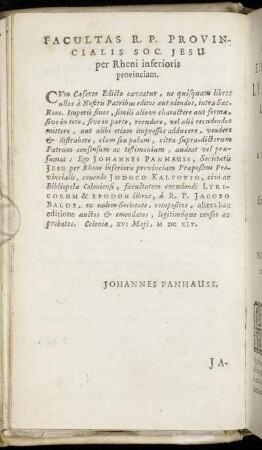 FACULTAS R. P. PROVIN-
CIALIS SOC. JESU
per Rheni inferioris
provinciam.
CVm Cæsareo Edicto caveatur, ne quisquam libros
ullos à Nostris Patribus editos aut edendos, intra Sac.
Rom. Imperii fines, simili aliove charactere aut formâ,
sive in toto, sive in parte, recudere, vel alio recudendos
mittere, aut alibi etiam impressos adducere, vendere
& distrahere, clam seu palam, citra supra-dictorum
Patrum consensum ac testimonium, audeat vel præ-
sumat: Ego JOHANNES PANHAUSS, Societatis
JESU per Rheni inferioris provinciam Præpositus Pro-
vincialis, concedo JODOCO KALCOVIO, civi ac
Bibliopolæ Coloniensi, facultatem excudendi LYRI-
CORUM & EPODON libros, à R. P. JACOBO
BALDE, ex eadem Societate, compositos, altera hac
editione auctos & emendatos, legitiméque censos ac
probatos. Coloniæ, XVI Maji, M DC XLV.
JOHANNES PANHAUSS,
JA-